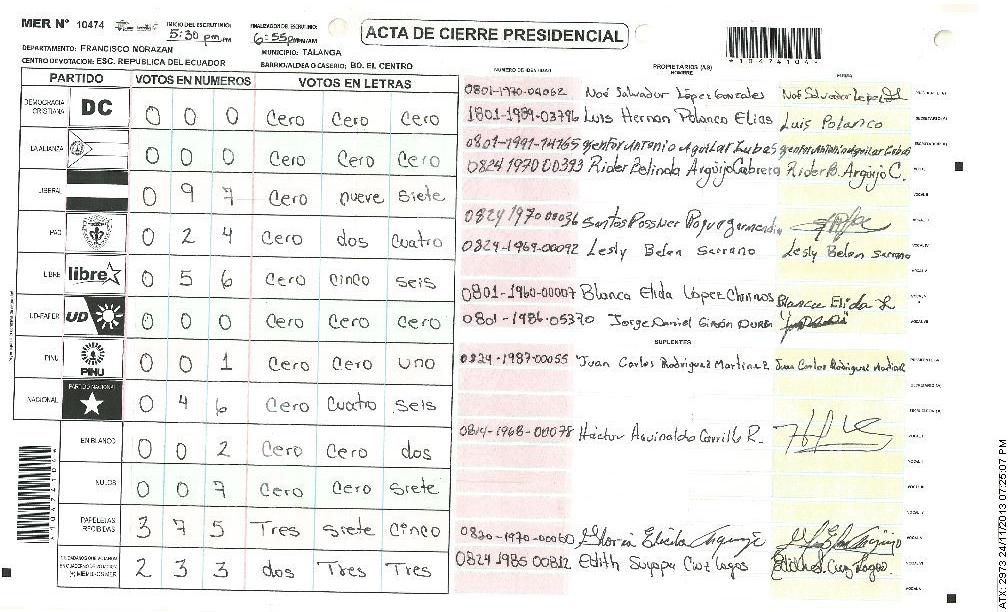 MER Nº 10474
INICIO DEL ESCRUTINIO: 5:30 pm PM
FINALIZACION DEL ESCRUTINIO: 6:55 pm PM/AM
ACTA DE CIERRE PRESIDENCIAL
*10474104*
DEPARTAMENTO: FRANCISCO MORAZAN
MUNICIPIO: TALANGA
CENTRO DE VOTACION: ESC. REPUBLICA DEL ECUADOR
BARRIO/ALDEA O CASERIO: BO. EL CENTRO
PARTIDO VOTOS EN NUMEROS VOTOS EN LETRAS
DEMOCRACIA CRISTIANA DC 0 0 0 Cero Cero Cero
LA ALIANZA 0 0 0 Cero Cero Cero
LIBERAL 0 9 7 Cero nueve siete
PAC 0 2 4 Cero dos cuatro
LIBRE libre 0 5 6 Cero cinco seis
UD-FAPER UD 0 0 0 Cero Cero Cero
PINU PINU 0 0 1 Cero Cero uno
NACIONAL PARTIDO NACIONAL 0 4 6 Cero Cuatro seis
EN BLANCO 0 0 2 Cero Cero dos
NULOS 0 0 7 Cero Cero siete
PAPELETAS RECIBIDAS 3 7 5 Tres siete cinco
CIUDADANOS QUE VOTARON EN CUADERNO DE VOTACION (+) MIEMBROS MER 2 3 3 dos Tres Tres
NUMERO DE IDENTIDAD PROPIETARIOS (AS) NOMBRE FIRMA
0801-1970-04062 Noé Salvador López Gonzales
1801-1989-03796 Luis Hernan Polanco Elias Luis Polanco
0801-1991-14165
0824 1970 00393 Rider Belinda Argüijo Cabrera Rider B. Argüijo C.
0824 1970 00036
0824-1969-00092 Lesly Belen Serrano Lesly Belen Serrano
0801-1960-00007 Blanca Elida López Chirinos Blanca Elida L
0801-1986-05370 Jorge Daniel Girón
SUPLENTES
0824-1987-00055 Juan Carlos Rodriguez Martinez Juan Carlos Rodriguez
0814-1968-00078 Héctor Aguinaldo Carrillo R.
0820-1970-00060 Gloria
0824 1985 00812 Edith Suyapa Cruz Lagos
*10474104*
ATX: 2973 24/11/2013 07:25:07 PM